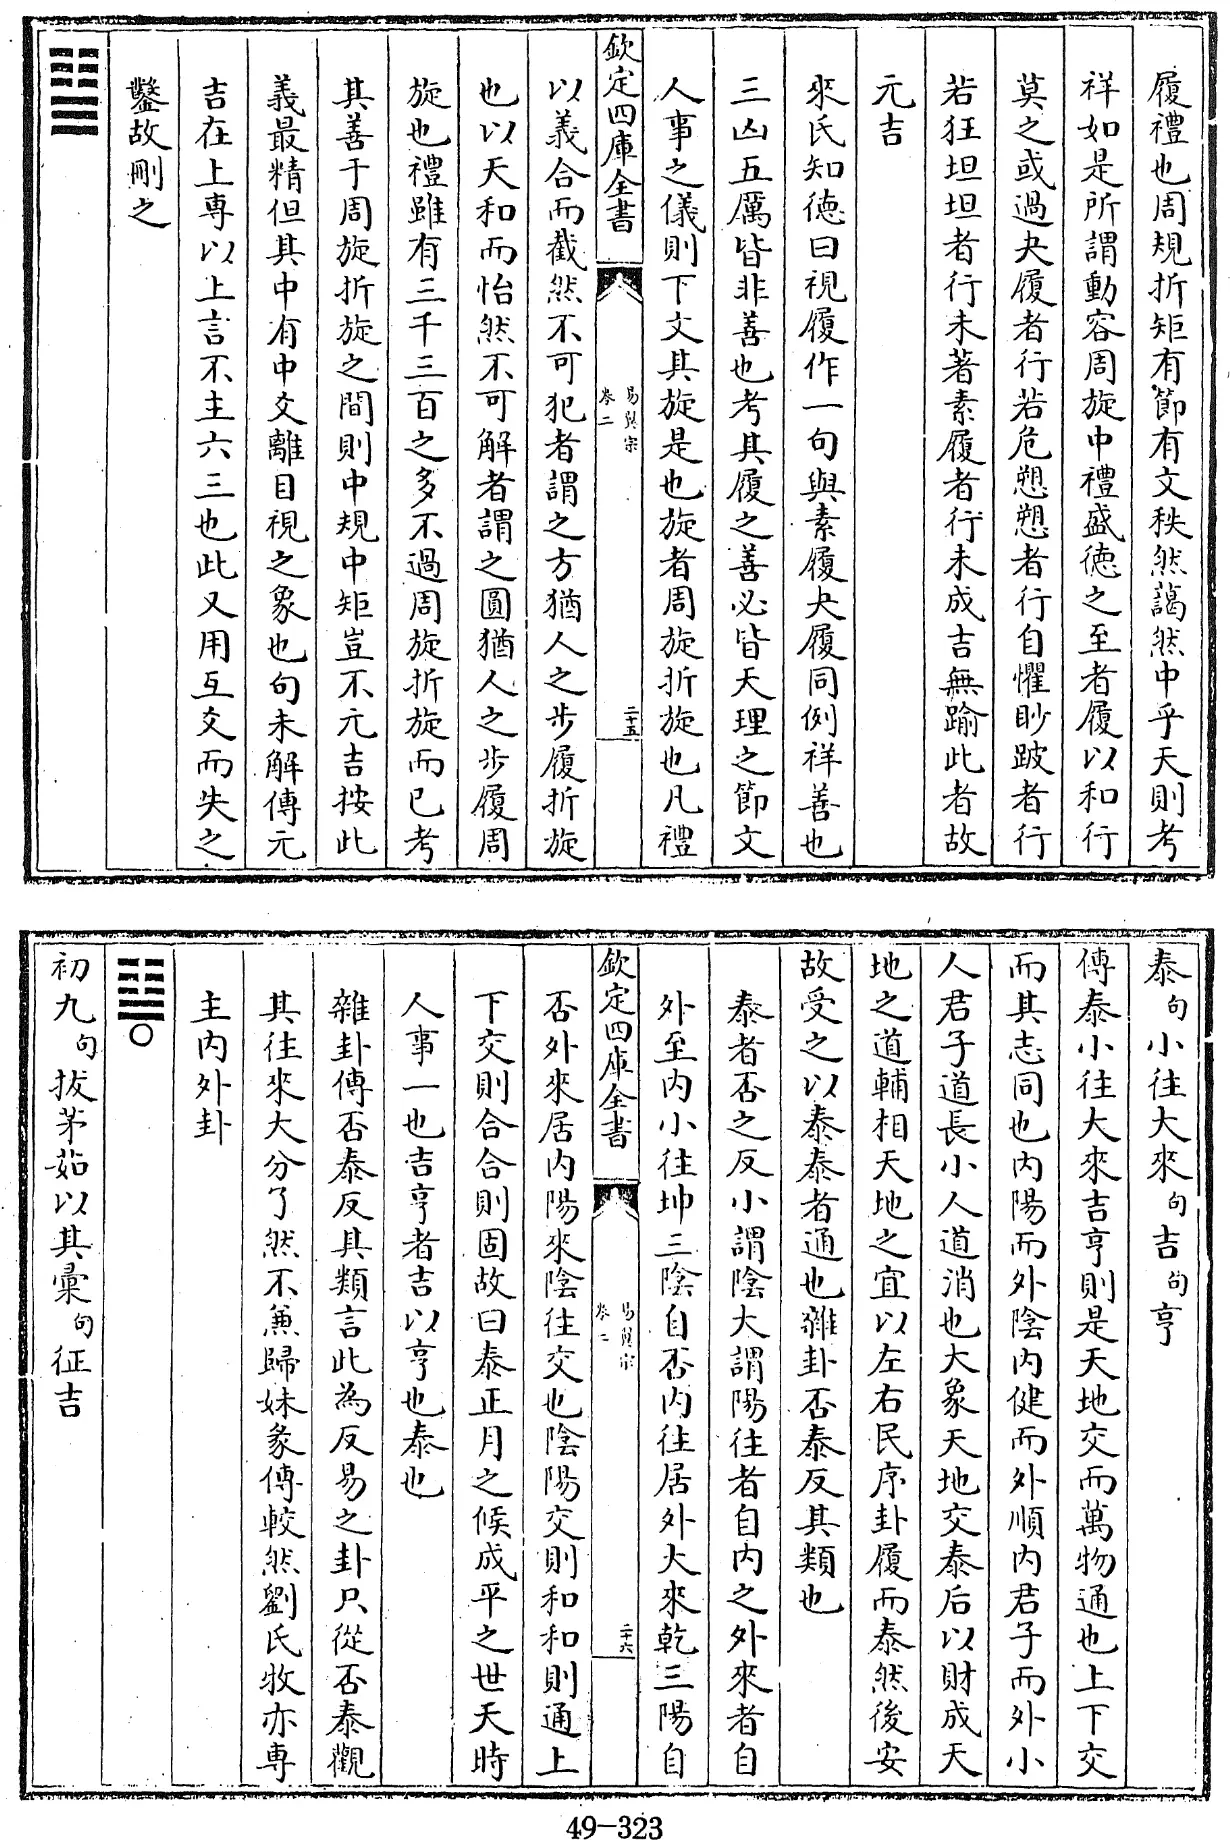 履禮也周規折矩有節有文秩然藹然中乎天則考
祥如是所謂動容周旋中禮盛德之至者履以和行
莫之或過夬履者行若危愬愬者行自懼眇跛者行
若狂坦坦者行未著素履者行未成吉無踰此者故
元吉
來氏知德曰視履作一句與素履夬履同例祥善也
三凶五厲皆非善也考其履之善必皆天理之節文
人事之儀則下文其旋是也旋者周旋折旋也凡禮
欽定四庫全書
易翼宗
卷二
二十五
以義合而截然不可犯者謂之方猶人之步履折旋
也以天和而怡然不可解者謂之圓猶人之步履周
旋也禮雖有三千三百之多不過周旋折旋而已考
其善于周旋折旋之間則中規中矩豈不元吉按此
義最精但其中有中爻離目視之象也句未解傳元
吉在上專以上言不主六三也此又用互爻而失之
鑿故刪之
泰句小往大來句吉句亨
傳泰小往大來吉亨則是天地交而萬物通也上下交
而其志同也內陽而外陰內健而外順內君子而外小
人君子道長小人道消也大象天地交泰后以財成天
地之道輔相天地之宜以左右民序卦履而泰然後安
故受之以泰泰者通也雜卦否泰反其類也
泰者否之反小謂陰大謂陽往者自內之外來者自
外至內小往坤三陰自否內往居外大來乾三陽自
欽定四庫全書
易翼宗
卷二
二十六
否外來居內陽來陰往交也陰陽交則和和則通上
下交則合合則固故曰泰正月之候成平之世天時
人事一也吉亨者吉以亨也泰也
雜卦傳否泰反其類言此為反易之卦只從否泰觀
其往來大分了然不兼歸妹彖傳較然劉氏牧亦專
主內外卦
初九句拔茅茹以其彙句征吉
49-323